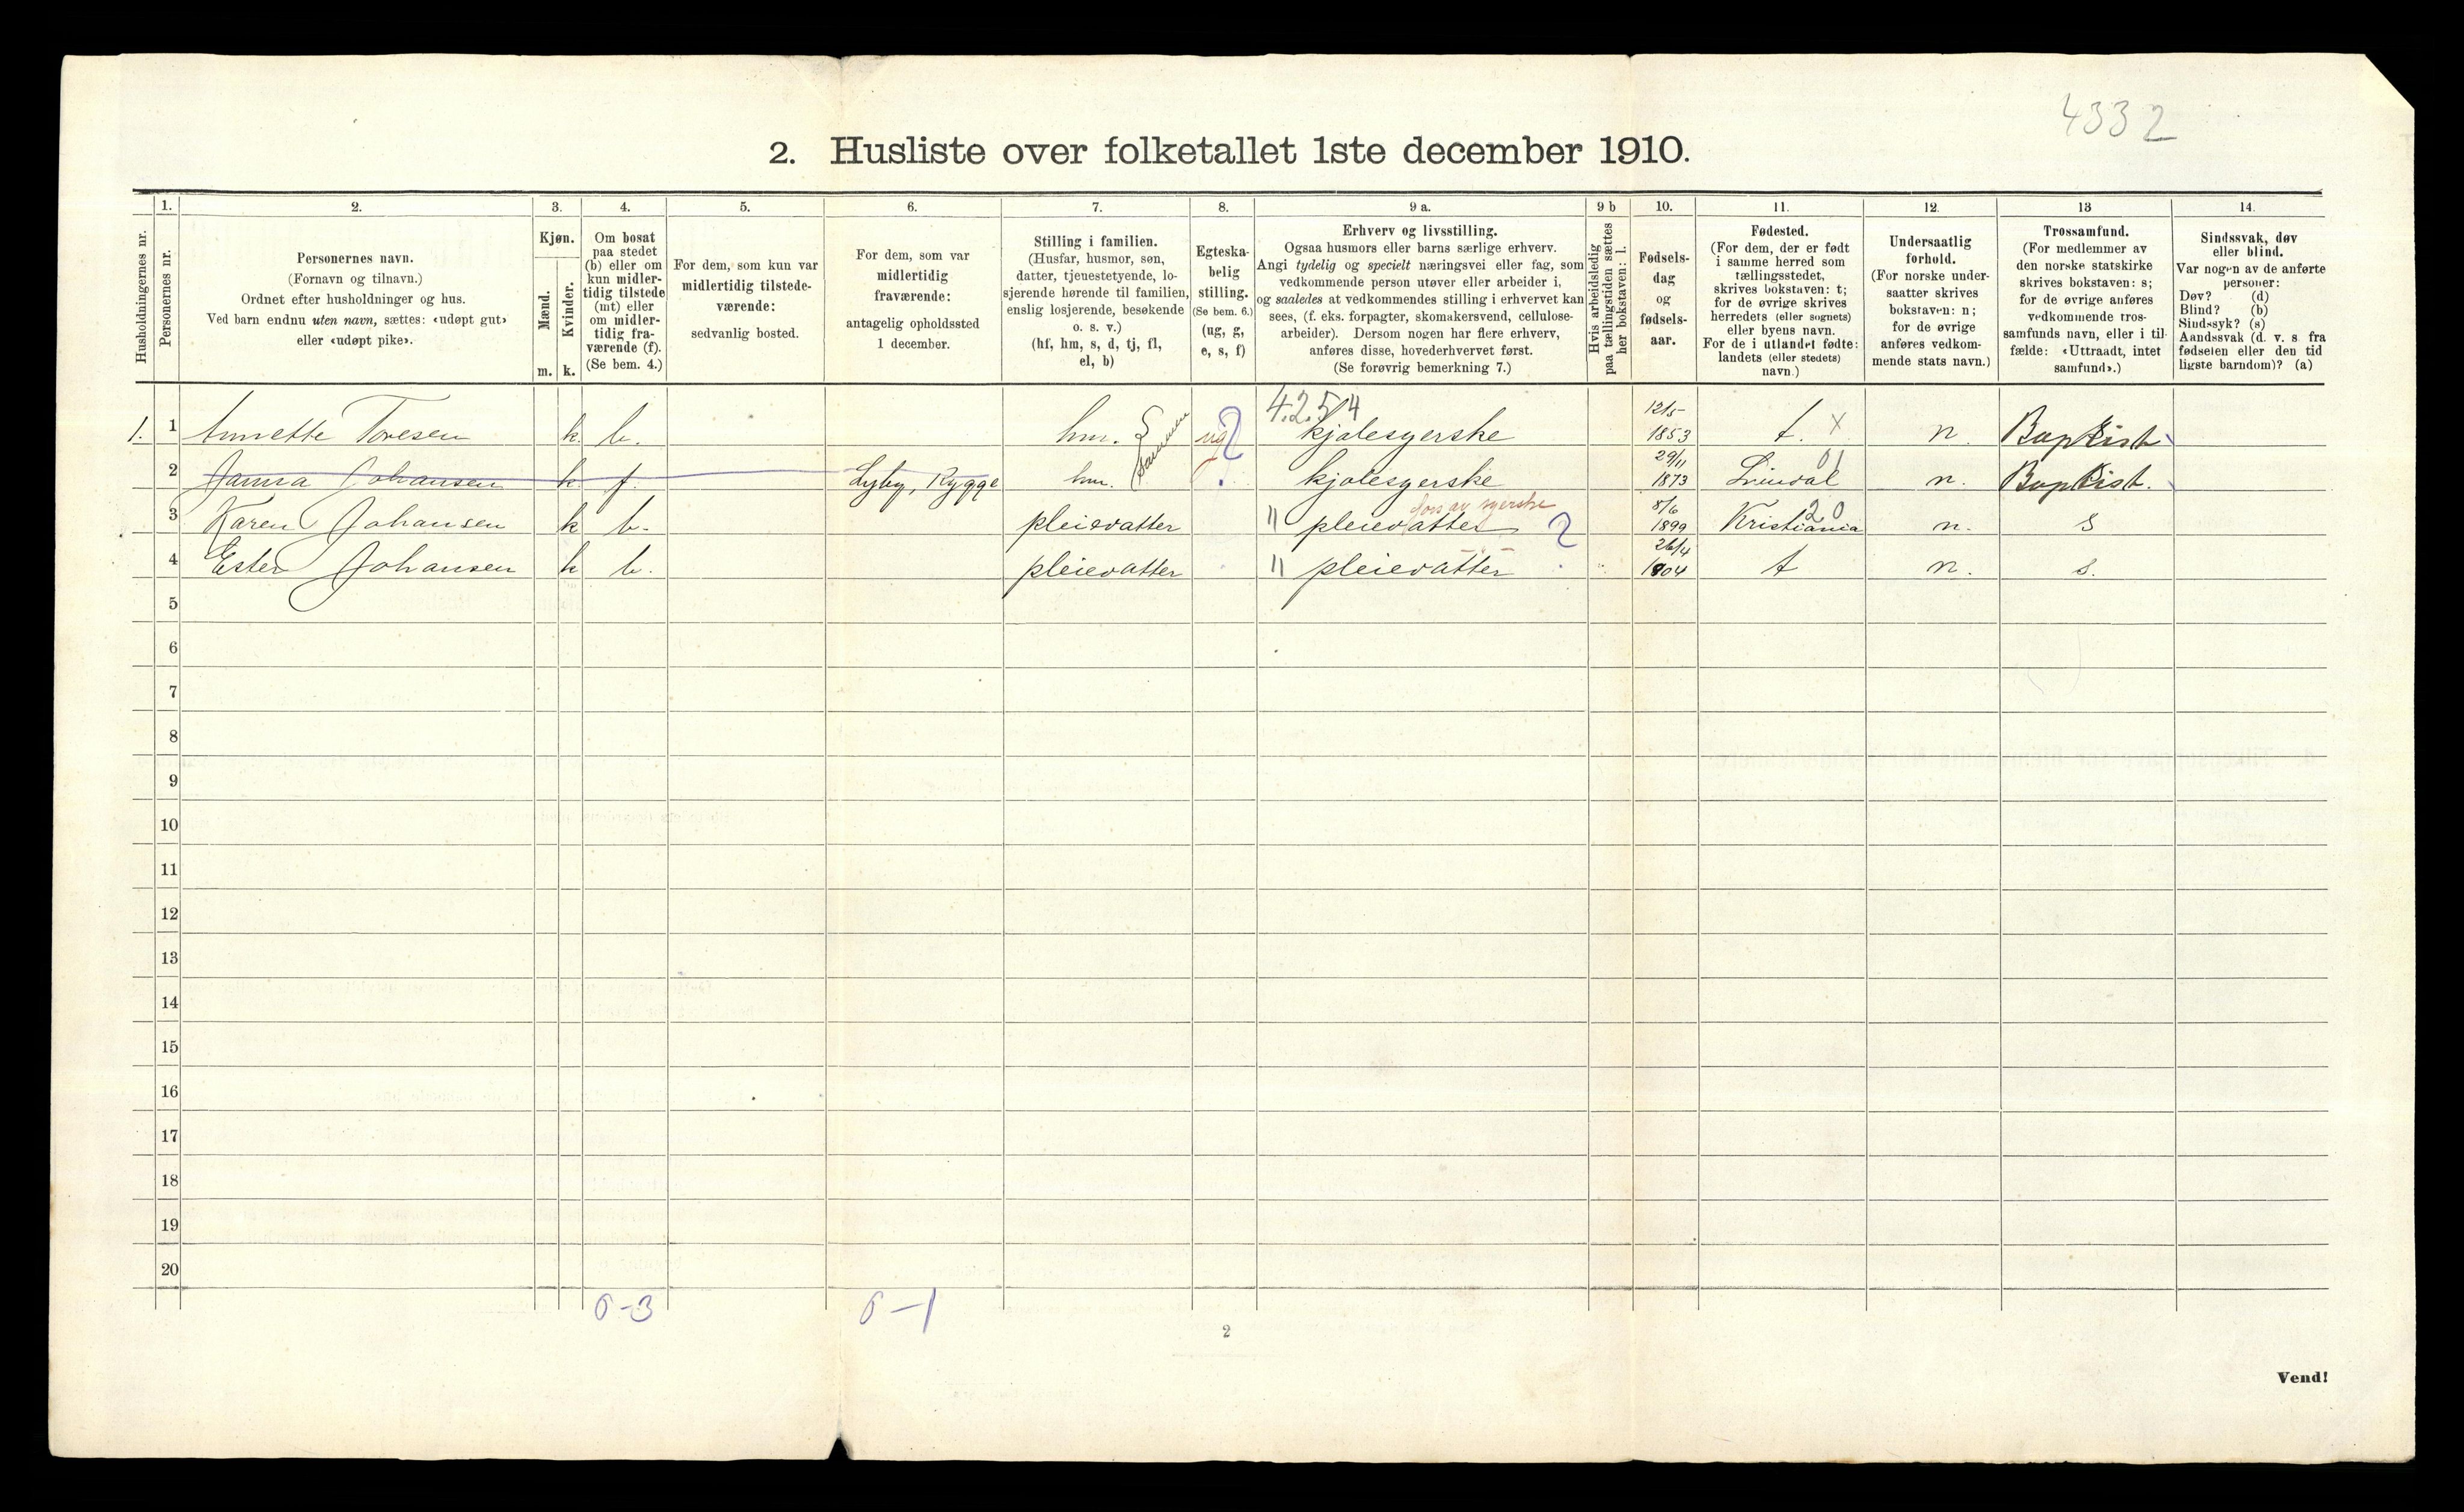 4332
2. Husliste over folketallet 1ste december 1910.
1. 2. 3. 4. 5. 6. 7. 8. 9 a. 9 b 10. 11. 12. 13 14.
Husholdningernes nr.
Personernes nr.
Personernes navn.
(Fornavn og tilnavn.)
Ordnet efter husholdninger og hus.
Ved barn endnu uten navn, sættes: «udøpt gut»
eller «udøpt pike».
Kjøn.
Mænd.
Kvinder.
m. k.
Om bosat
paa stedet
(b) eller om
kun midler-
tidig tilstede
(mt) eller
om midler-
tidig fra-
værende (f).
(Se bem. 4.)
For dem, som kun var
midlertidig tilstede-
værende:
sedvanlig bosted.
For dem, som var
midlertidig
fraværende:
antagelig opholdssted
1 december.
Stilling i familien.
(Husfar, husmor, søn,
datter, tjenestetyende, lo-
sjerende hørende til familien,
enslig losjerende, besøkende
o. s. v.)
(hf, hm, s, d, tj, fl,
el, b)
Egteska-
belig
stilling.
(Se bem. 6.)
(ug, g,
e, s, f)
Erhverv og livsstilling.
Ogsaa husmors eller barns særlige erhverv.
Angi tydelig og specielt næringsvei eller fag, som
vedkommende person utøver eller arbeider i,
og saaledes at vedkommendes stilling i erhvervet kan
sees, (f. eks. forpagter, skomakersvend, cellulose-
arbeider). Dersom nogen har flere erhverv,
anføres disse, hovederhvervet først.
(Se forøvrig bemerkning 7.)
Hvis arbeidsledig
paa tællingstiden sættes
her bokstaven: l.
Fødsels-
dag
og
fødsels-
aar.
Fødested.
(For dem, der er født
i samme herred som
tællingsstedet,
skrives bokstaven: t;
for de øvrige skrives
herredets (eller sognets)
eller byens navn.
For de i utlandet fødte:
landets (eller stedets)
navn.)
Undersaatlig
forhold.
(For norske under-
saatter skrives
bokstaven: n;
for de øvrige
anføres vedkom-
mende stats navn.)
Trossamfund.
(For medlemmer av
den norske statskirke
skrives bokstaven: s;
for de øvrige anføres
vedkommende tros-
samfunds navn, eller i til-
fælde: «Uttraadt, intet
samfund».)
Sindssvak, døv
eller blind.
Var nogen av de anførte
personer:
Døv? (d)
Blind? (b)
Sindssyk? (s)
Aandssvak (d. v. s. fra
fødselen eller den tid
ligste barndom)? (a)
1. 1 Annette Toresen k. b. hm. Sammen ug ? 4.2.5.4 kjolesyerske 12/5 1853 t. x n. Baptist
2 Johansen k f. Lyby, Rygge hm. kjolesyerske 29/11 1873 01 n. Baptist.
3 Karen Johansen k b. pleiedatter " pleiedatter fors av syerske ? 8/6 1899 Kristiania 20 n. s
4 Ester Johansen k b. pleiedatter " pleiedatter 26/4 1904 t n. s.
5
6
7
8
9
10
11
12
13
14
15
16
17
18
19
20
0-3 0-1
2
Vend!